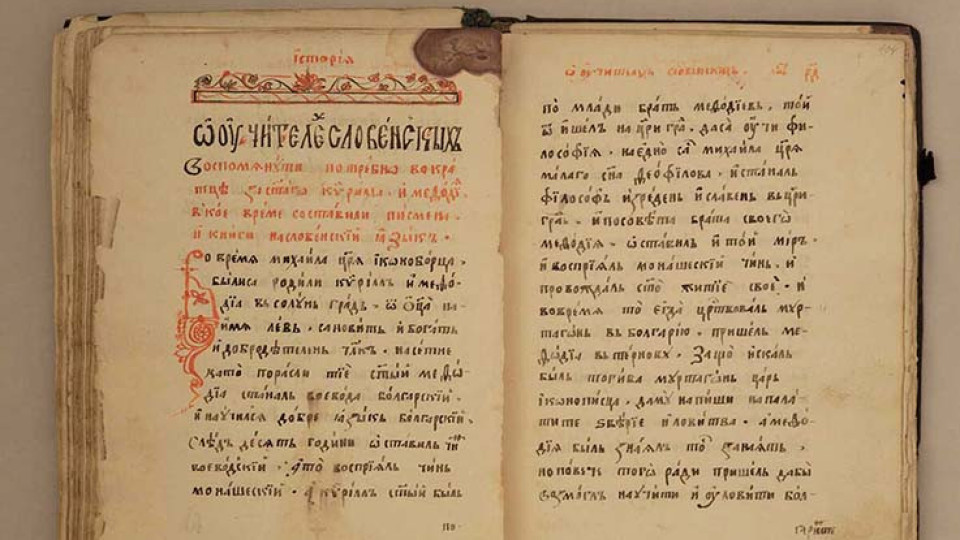 історїа
Ѡ оучителеⷯ словенскихъ
Воспомянути потребно вокра-
тцѣ за стаго кѵрила. и меѳодїѧ.
в кое време составили писмена.
и книги на словенскїй ꙗзыкъ.
Во время михаила цр҃ѧ іконоборца.
были са родили кѵрилъ и меѳо-
дїа въ солунь градъ. ѿ оц҃а на
имя левъ. сановитъ и богатъ
и добродѣтеленъ
като порасли тїе ст҃ый меѳо-
дїа сталъ воевода болгарскїй.
и научилсѧ добре ꙗзыкъ болгарскїй
слѣдъ десѧть години ѡставилъ
воеводскїй. воспрїѧлъ чинъ
монашескїй. а кѵрилъ ст҃ый былъ
по-
Ѡ оучителѧхъ словенскихъ.
по млади братъ меѳодїевъ. той
ѿишелъ на цр҃игра. да сѧ оучи фи-
лософїѧ. наедно сас михаила цр҃ѧ
малаго сн҃а ѳеофілова. и сталъ
фїлософъ изреденъ и славенъ в цр҃и-
гра. и посовѣта брата своего
меѳодїѧ. ѡставилъ и той миръ.
и воспрїѧлъ монашескїй чинъ. и
провождалъ ст҃о житїе свое. и
во время то егда цр҃ствовалъ мур-
тагонъ въ болгарїю. пришелъ ме-
ѳодїа въ терновъ. защо искалъ
былъ тогива муртагонъ царь
іконописца. да му напиши на пала-
тите ѕвѣрїе и ловитва. а меѳо-
дїѧ былъ зналъ то занаѧтъ.
но повече того ради пришелъ дабы
возмоглъ научити и оуловити бол-
гарите